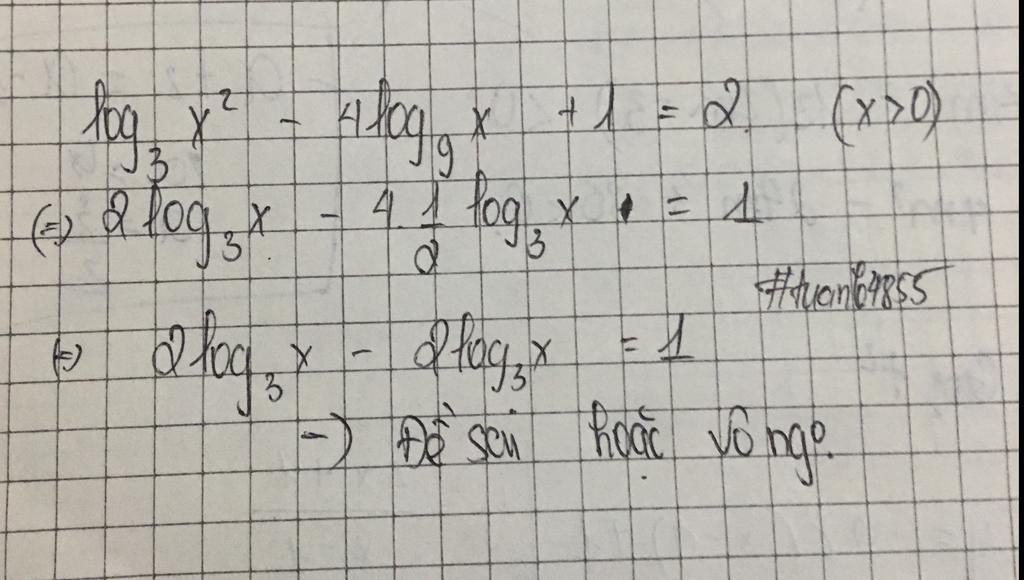 log₃ x² - 4log₉ x + 1 = 2 (x>0)
(=) 2log₃ x - 4.1/2 log₃ x = 1
#tuan64855
(=) 2log₃ x - 2log₃ x = 1
-) Đề sai hoặc vô ngo.